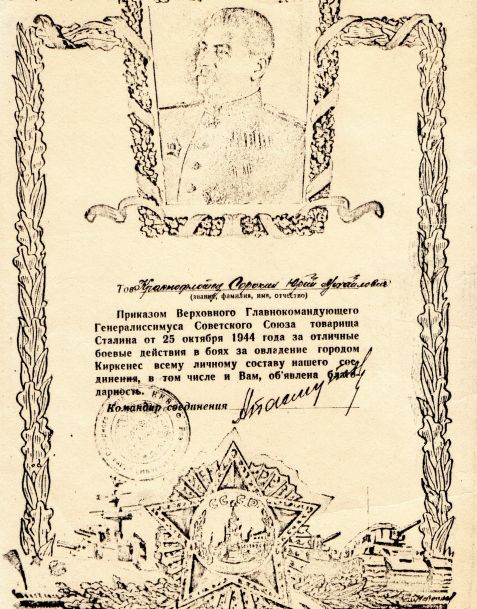 Тов. Краснофлотец Сорокин Юрий Михайлович
(звание, фамилия, имя, отчество)
Приказом Верховного Главнокомандующего
Генералиссимуса Советского Союза товарища
Сталина от 25 октября 1944 года за отличные
боевые действия в боях за овладение городом
Киркенес всему личному составу нашего сое-
динения, в том числе и Вам, об'явлена благо-
дарность.
Командир соединения
СССР